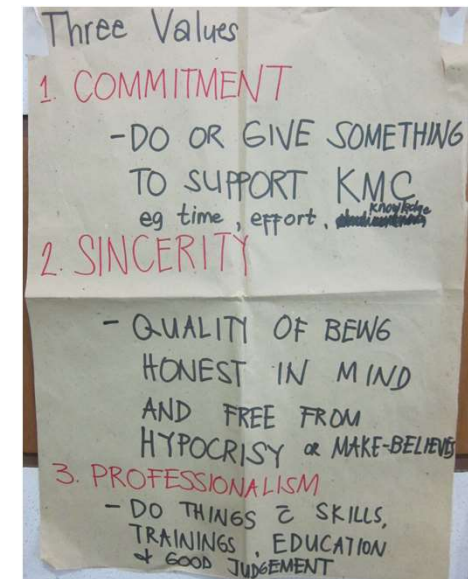 Three Values
1. COMMITMENT
- DO OR GIVE SOMETHING
TO SUPPORT KMC
eg time, effort, knowledge
2. SINCERITY
- QUALITY OF BEING
HONEST IN MIND
AND FREE FROM
HYPOCRISY or MAKE-BELIEVES
3. PROFESSIONALISM
- DO THINGS c̄ SKILLS,
TRAININGS, EDUCATION
& GOOD JUDGEMENT